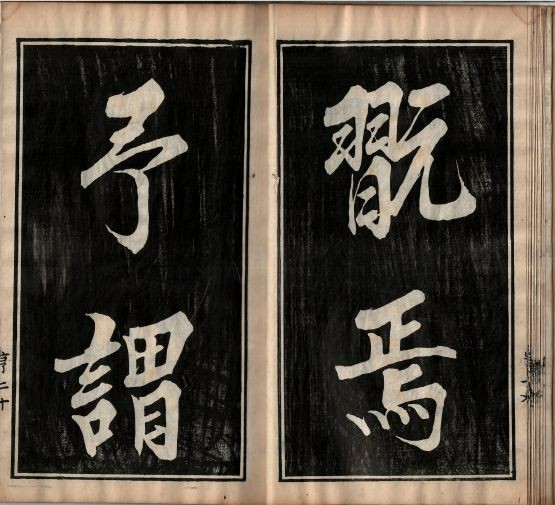 翫焉
予謂
亨二十